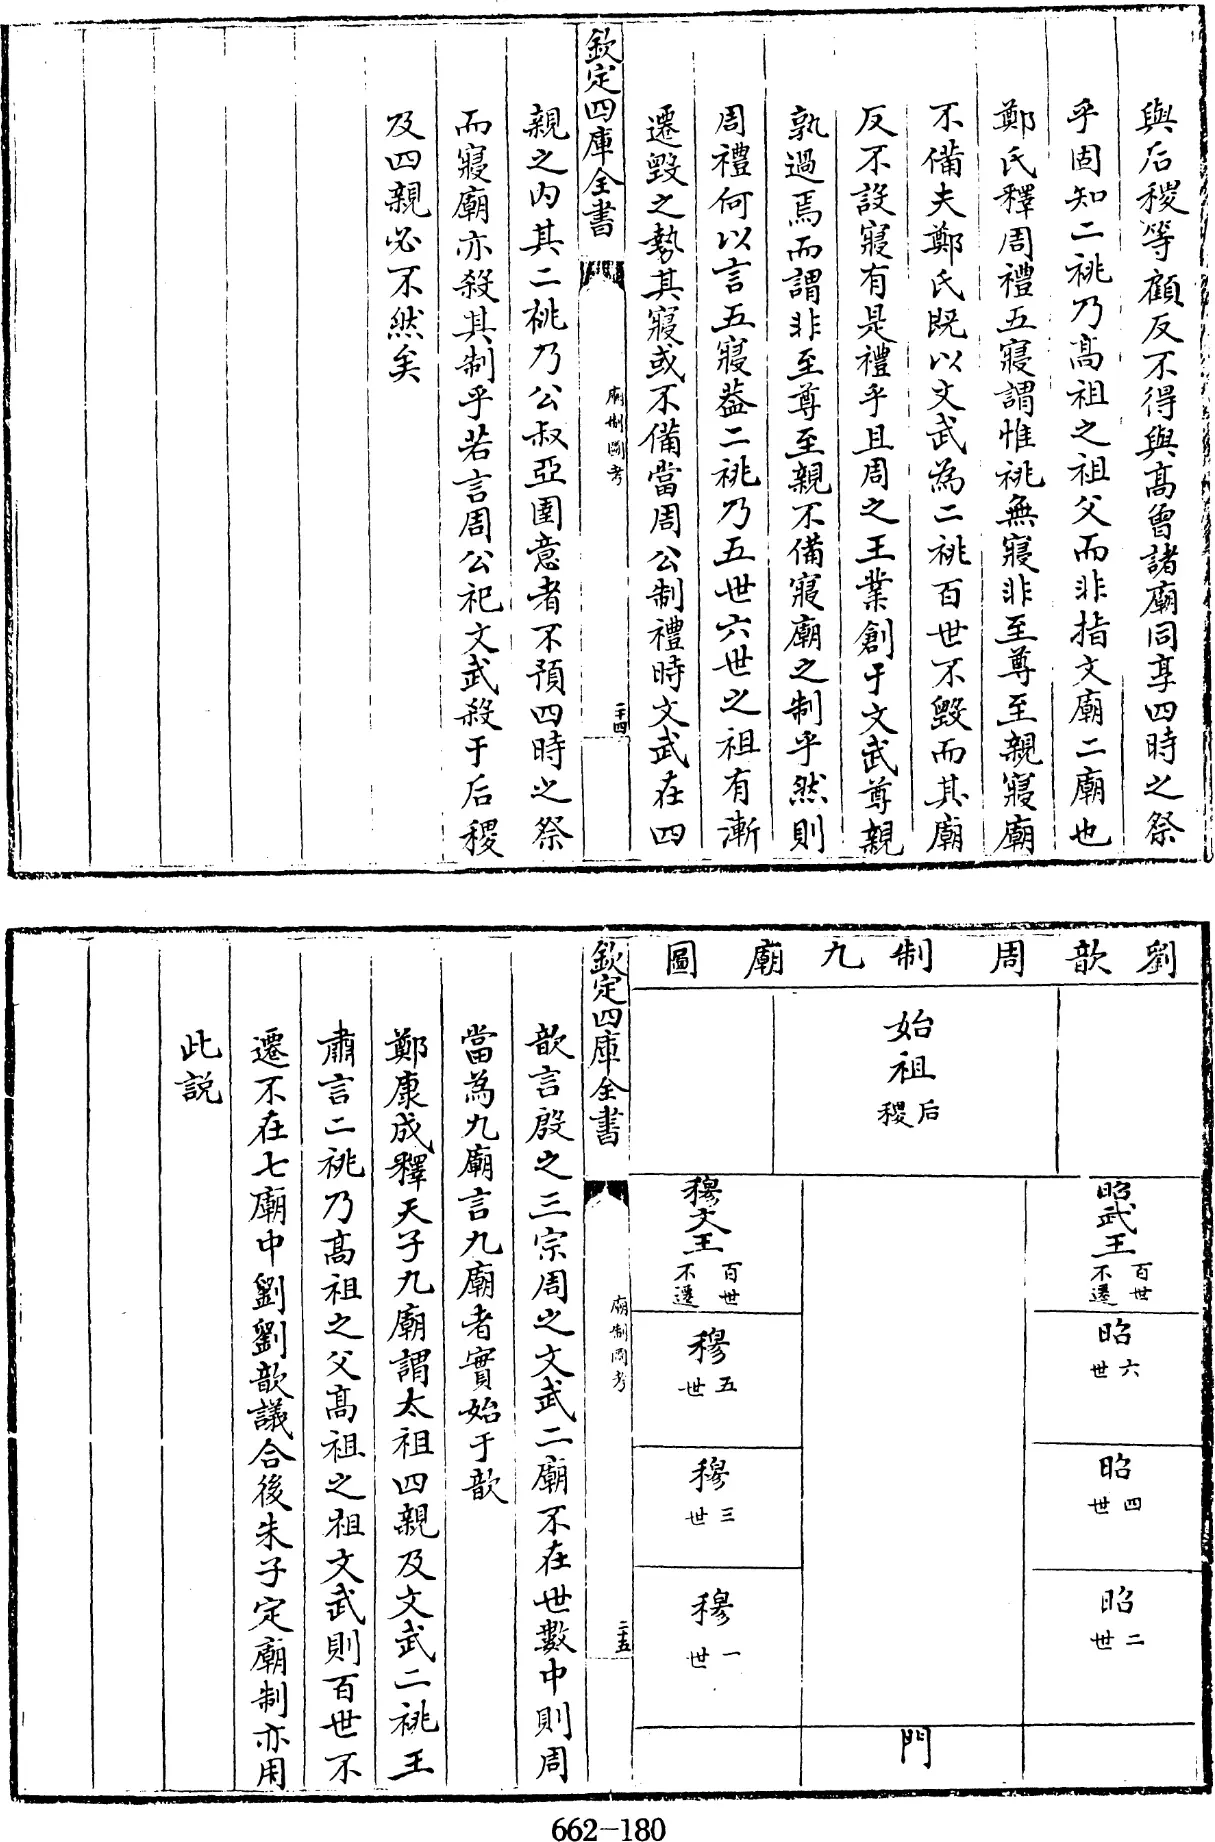 與后稷等顧反不得與高曾諸廟同享四時之祭
乎固知二祧乃高祖之祖父而非指文廟二廟也
鄭氏釋周禮五寢謂惟祧無寢非至尊至親寢廟
不備夫鄭氏既以文武為二祧百世不毀而其廟
反不設寢有是禮乎且周之王業創于文武尊親
孰過焉而謂非至尊至親不備寢廟之制乎然則
周禮何以言五寢葢二祧乃五世六世之祖有漸
遷毀之勢其寢或不備當周公制禮時文武在四
欽定四庫全書
廟制圖考
二十四
親之内其二祧乃公叔亞圉意者不預四時之祭
而寢廟亦殺其制乎若言周公祀文武殺于后稷
及四親必不然矣
劉歆周制九廟圖
始祖
后稷
昭武王
百世不遷
昭
六世
昭
四世
昭
二世
穆文王
百世不遷
穆
五世
穆
三世
穆
一世
門
欽定四庫全書
廟制圖考
二十五
歆言殷之三宗周之文武二廟不在世數中則周
當為九廟言九廟者實始于歆
鄭康成釋天子九廟謂太祖四親及文武二祧王
肅言二祧乃高祖之父高祖之祖文武則百世不
遷不在七廟中劉劉歆議合後朱子定廟制亦用
此說
662-180